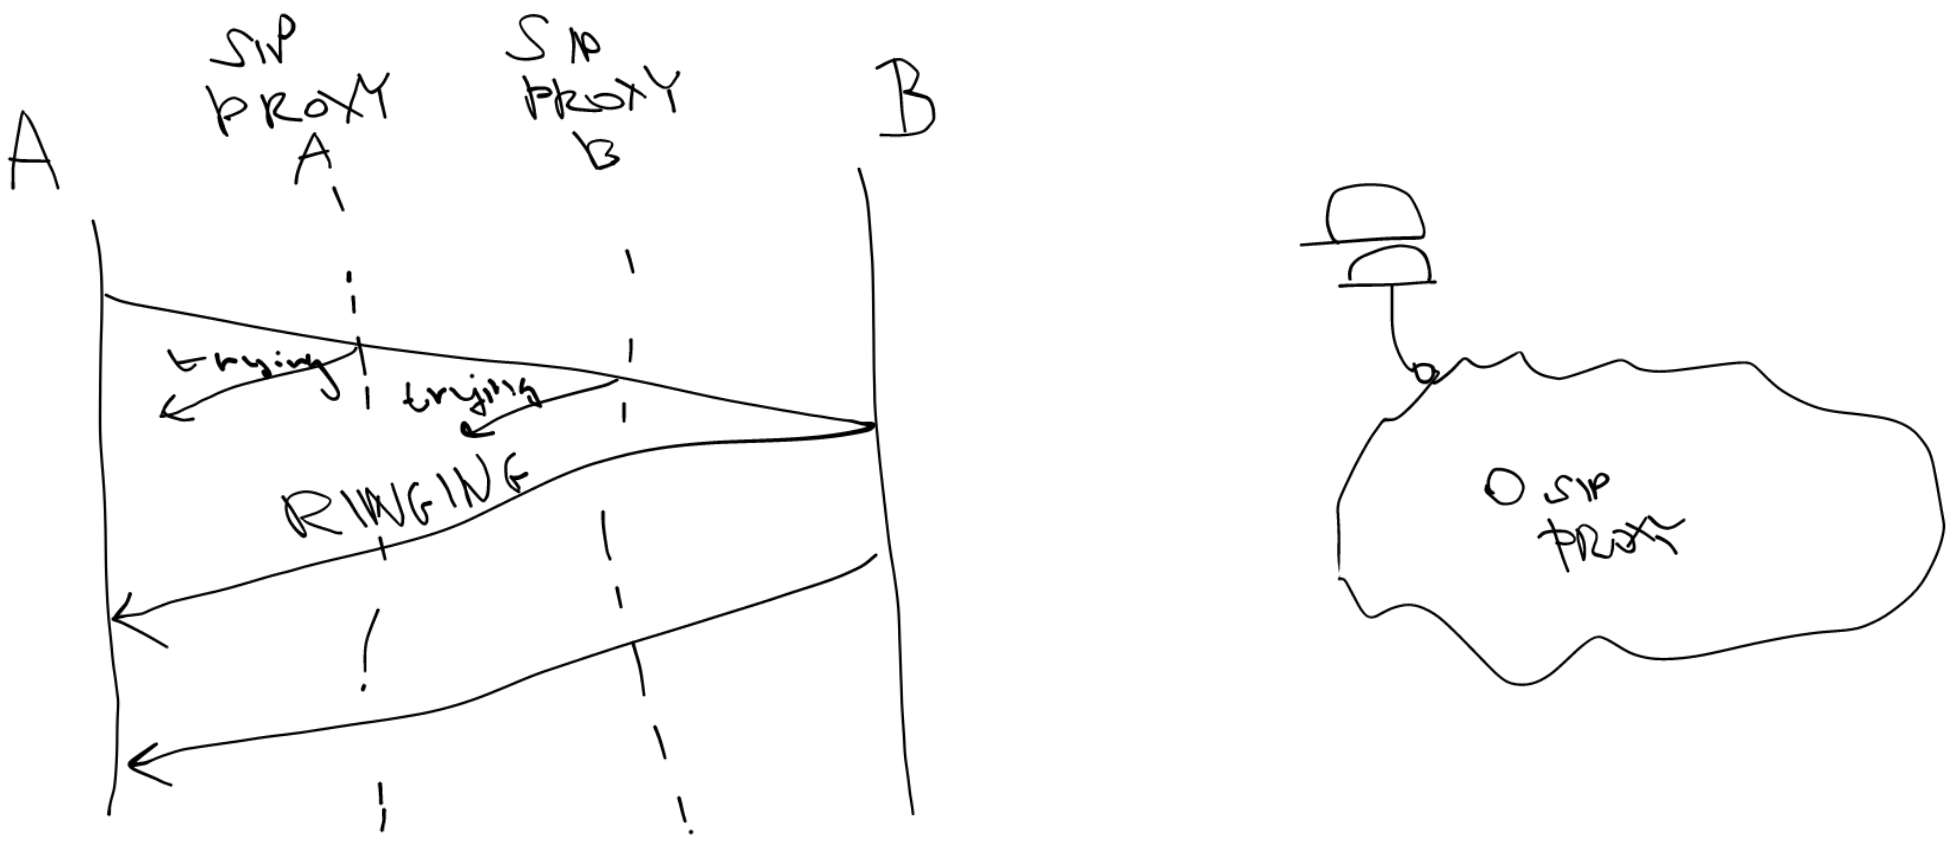 A
SIP
PROXY
A
SIP
PROXY
B
B
trying
trying
RINGING
SIP
PROXY